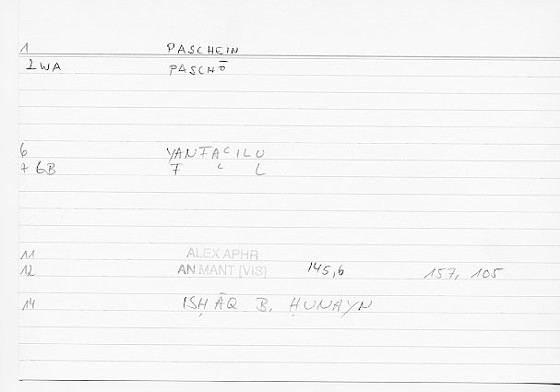 1 PASCHEIN
2WA PASCHŌ
6 YANFAᶜILU
7 GB F ᶜ L
11 ALEX APHR
12 AN MANT [VIS] 145,6 157, 105
14 ISḤĀQ B. ḤUNAYN